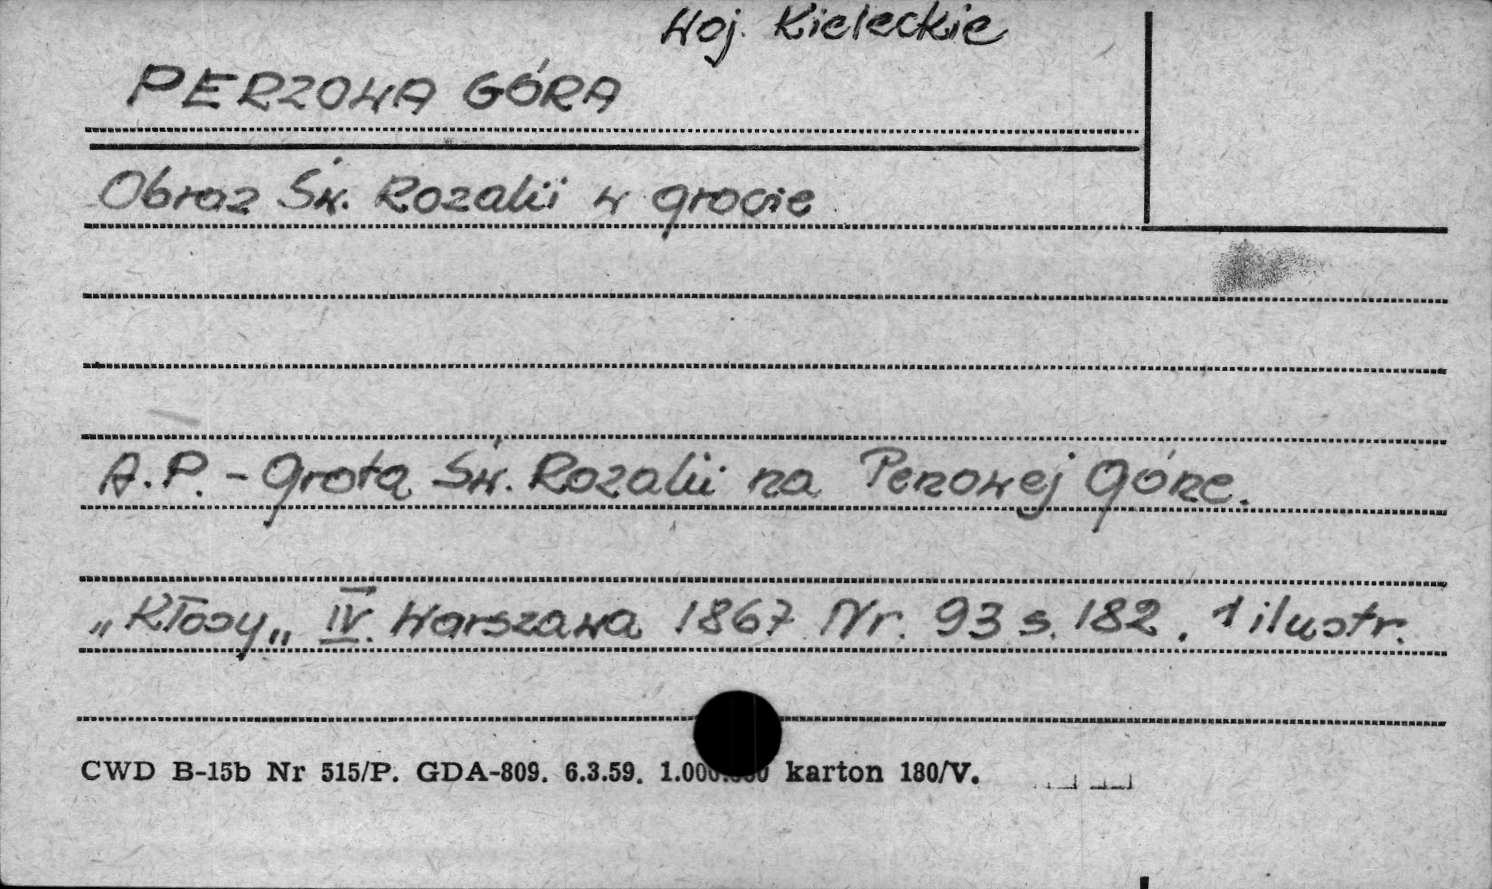 Woj. Kieleckie
PERZOWA GÓRA
Obraz Św. Rozalii w grocie
A.P. - Grota Św. Rozalii na Perzowej Górze.
„Kłosy„ IV. Warszawa 1867 Nr. 93 s. 182. 1 ilustr.
CWD B-15b Nr 515/P. GDA-809. 6.3.59. 1.000.000 karton 180/V.